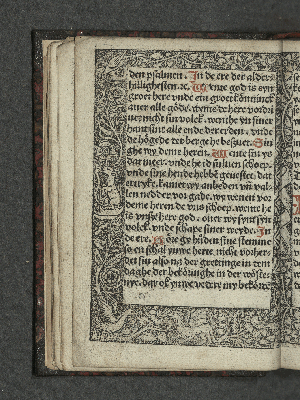 den psalmen. In de ere der alder
hillighesten. Wente god is eyn
groet here vnde ein groet konninck
auer alle gode. wente de here vordri
uet nicht sin volck. wente yn siner
hant sint alle ende der erden. vnde
de högede der berghe he besuet. Sin
ghe wy deme heren. Wente sin ys
dat meer. vnde he id sulven schoep.
vnde sine hende hebbē geuestet dat
ertryke. kamet wy anbeden vñ val
len nedder vor gade. wy wenen vor
deme heren de vns schoep. wente he
is vnse here god. ouer wy synt syn
volck. vnde schape siner weyde. In
de ere. Höre gy huden sine stemme
so en schal yuwe herte nicht vorher
det sin also na der grettinge in dem
daghe der bekoringhe in der wöste
nye. dar